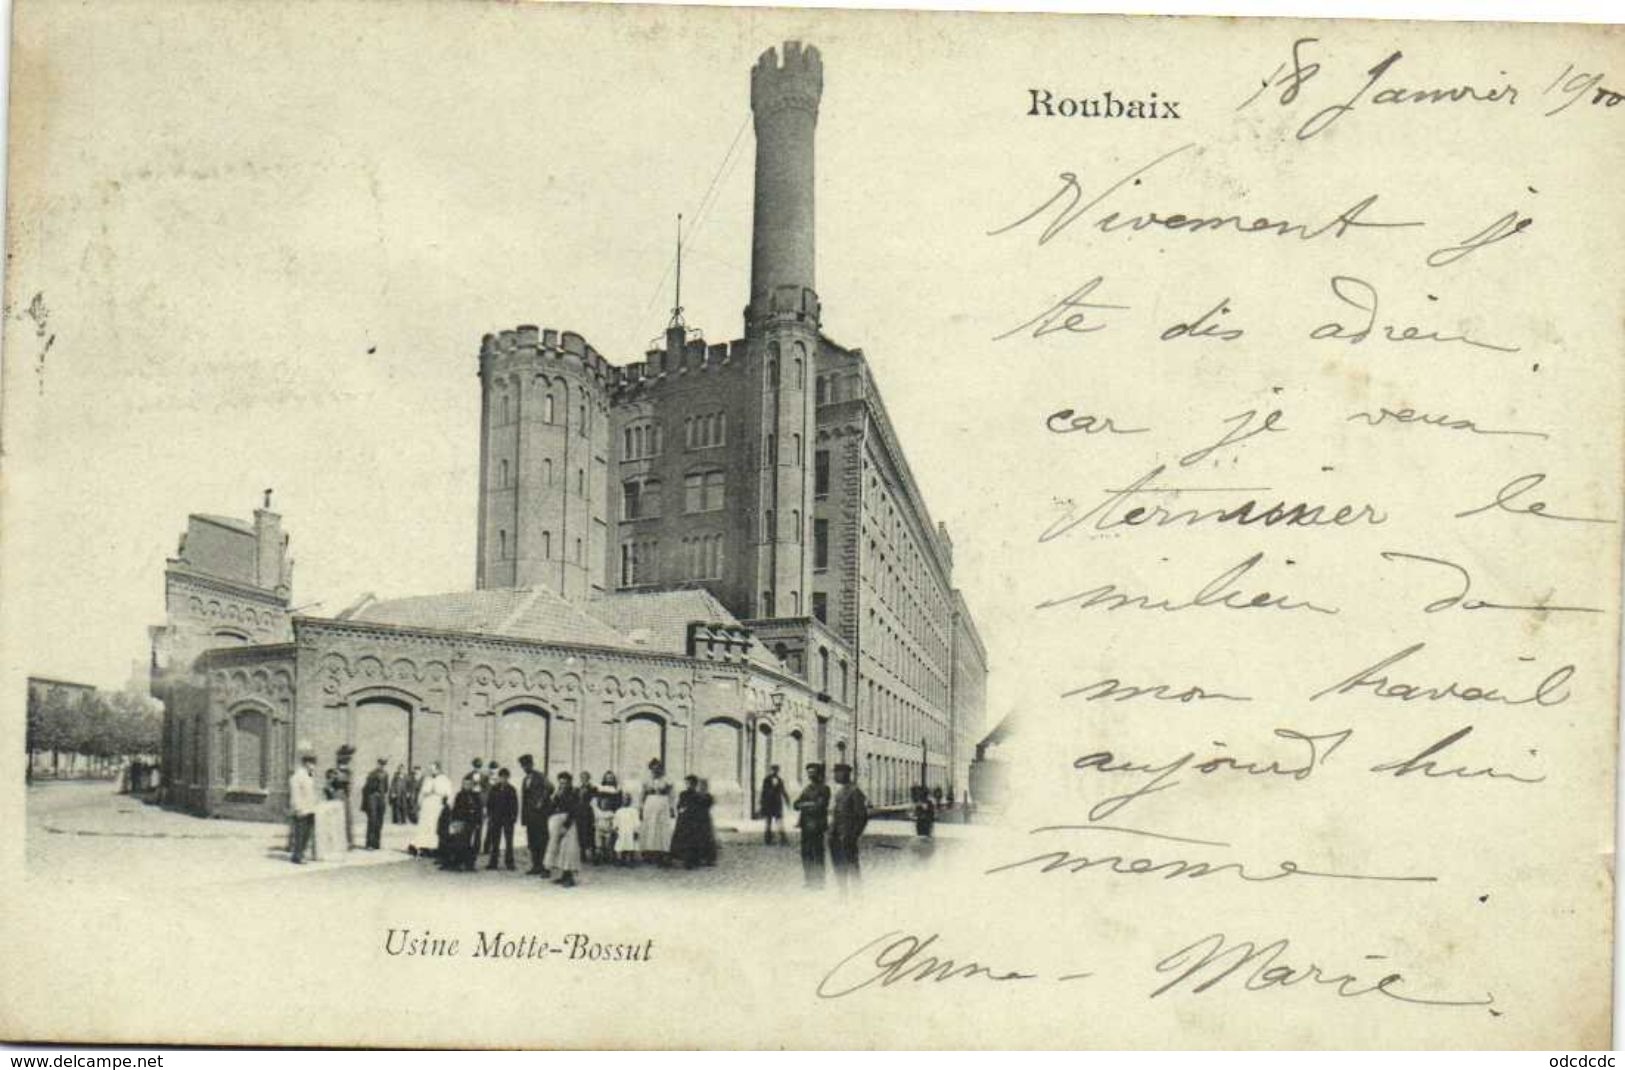 Roubaix
18 Janvier 1900
Vivement je
te dis adieu
car je veux
terminer le
milieu de
mon travail
aujourd hui
même.
Anne-Marie.
Usine Motte-Bossut
www.delcampe.net
odcdcdc